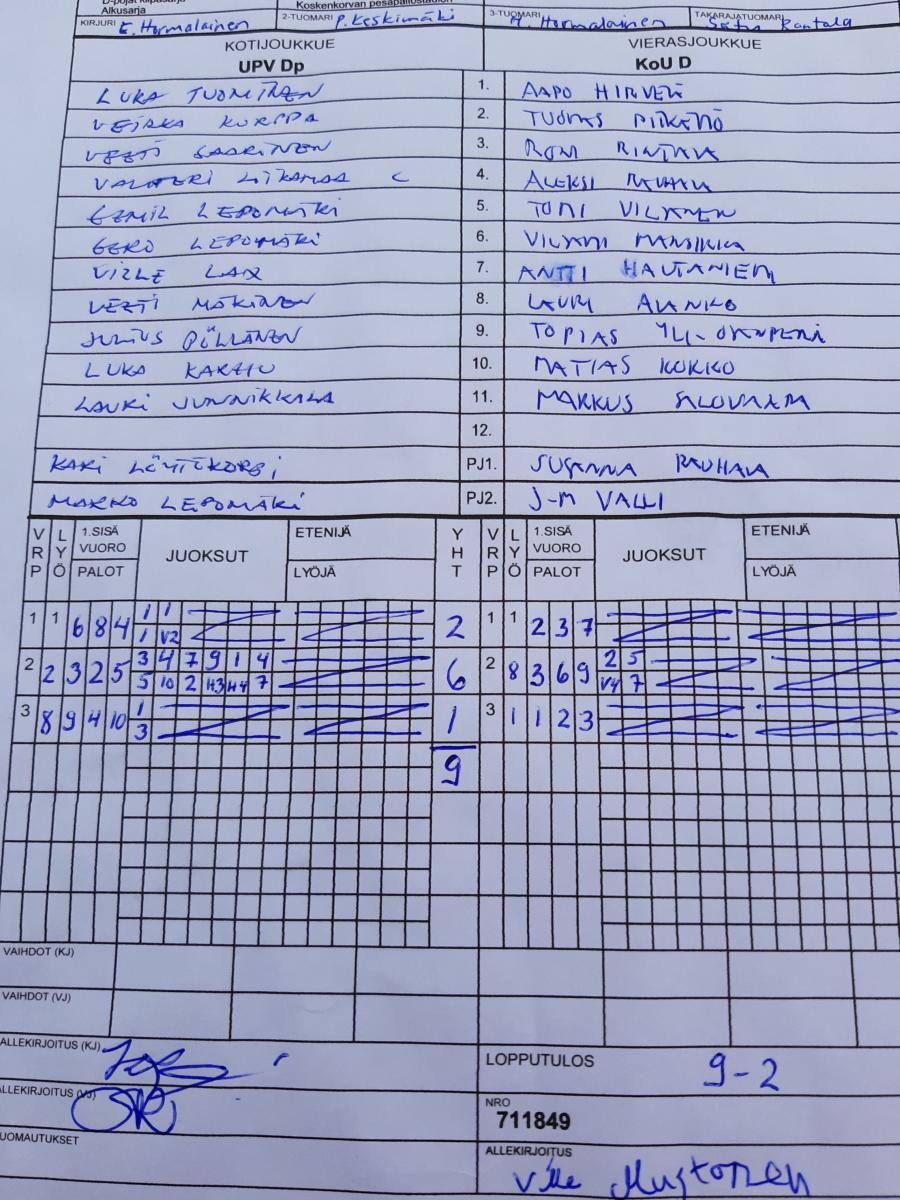 D-pojat kilpasarja
Alkusarja
Koskenkorvan pesäpallostadion
KIRJURI E. Hormalainen 2-TUOMARI P. Keskimäki 3-TUOMARI Hormalainen TAKARAJATUOMARI Rantala
KOTIJOUKKUE VIERASJOUKKUE
UPV Dp KoU D
LUKA TUOMINEN 1. AAPO HIRVELÄ
VEIKKA KORPPA 2. TUOMAS PITKÄNÖ
VEETI SAARINEN 3. RONI RINTALA
VALTTERI LIKAMAA C 4. ALEKSI RAUHALA
EEMIL LEPOMÄKI 5. TOMI VILJANEN
EERO LEPOMÄKI 6. VILJAMI MANSIKKA
VILLE LAX 7. ANTTI HAUTANIEMI
VEETI MÄKINEN 8. LAURI ALANKO
JULIUS PÖLLÄNEN 9. TOPIAS YLI-
LUKA KARHU 10. MATIAS KOKKO
LAURI JUNNIKKALA 11. MARKUS
12.
KARI PJ1. SUSANNA RAUHALA
MARKO LEPOMÄKI PJ2. J-M VALLI
VRP LYÖ 1.SISÄ VUORO PALOT JUOKSUT ETENIJÄ LYÖJÄ YHT VRP LYÖ 1.SISÄ VUORO PALOT JUOKSUT ETENIJÄ LYÖJÄ
1 1 6 8 4 1 1 2 1 1 2 3 7
1 V2
2 2 3 2 5 3 4 7 9 1 4 6 2 8 3 6 9 2 5
5 10 2 H3 H4 7 V4 7
3 8 9 4 10 1 1 3 1 1 2 3
3
9
VAIHDOT (KJ)
VAIHDOT (VJ)
ALLEKIRJOITUS (KJ)
LOPPUTULOS 9-2
ALLEKIRJOITUS (VJ)
NRO
711849
HUOMAUTUKSET
ALLEKIRJOITUS
Ville Mustonen